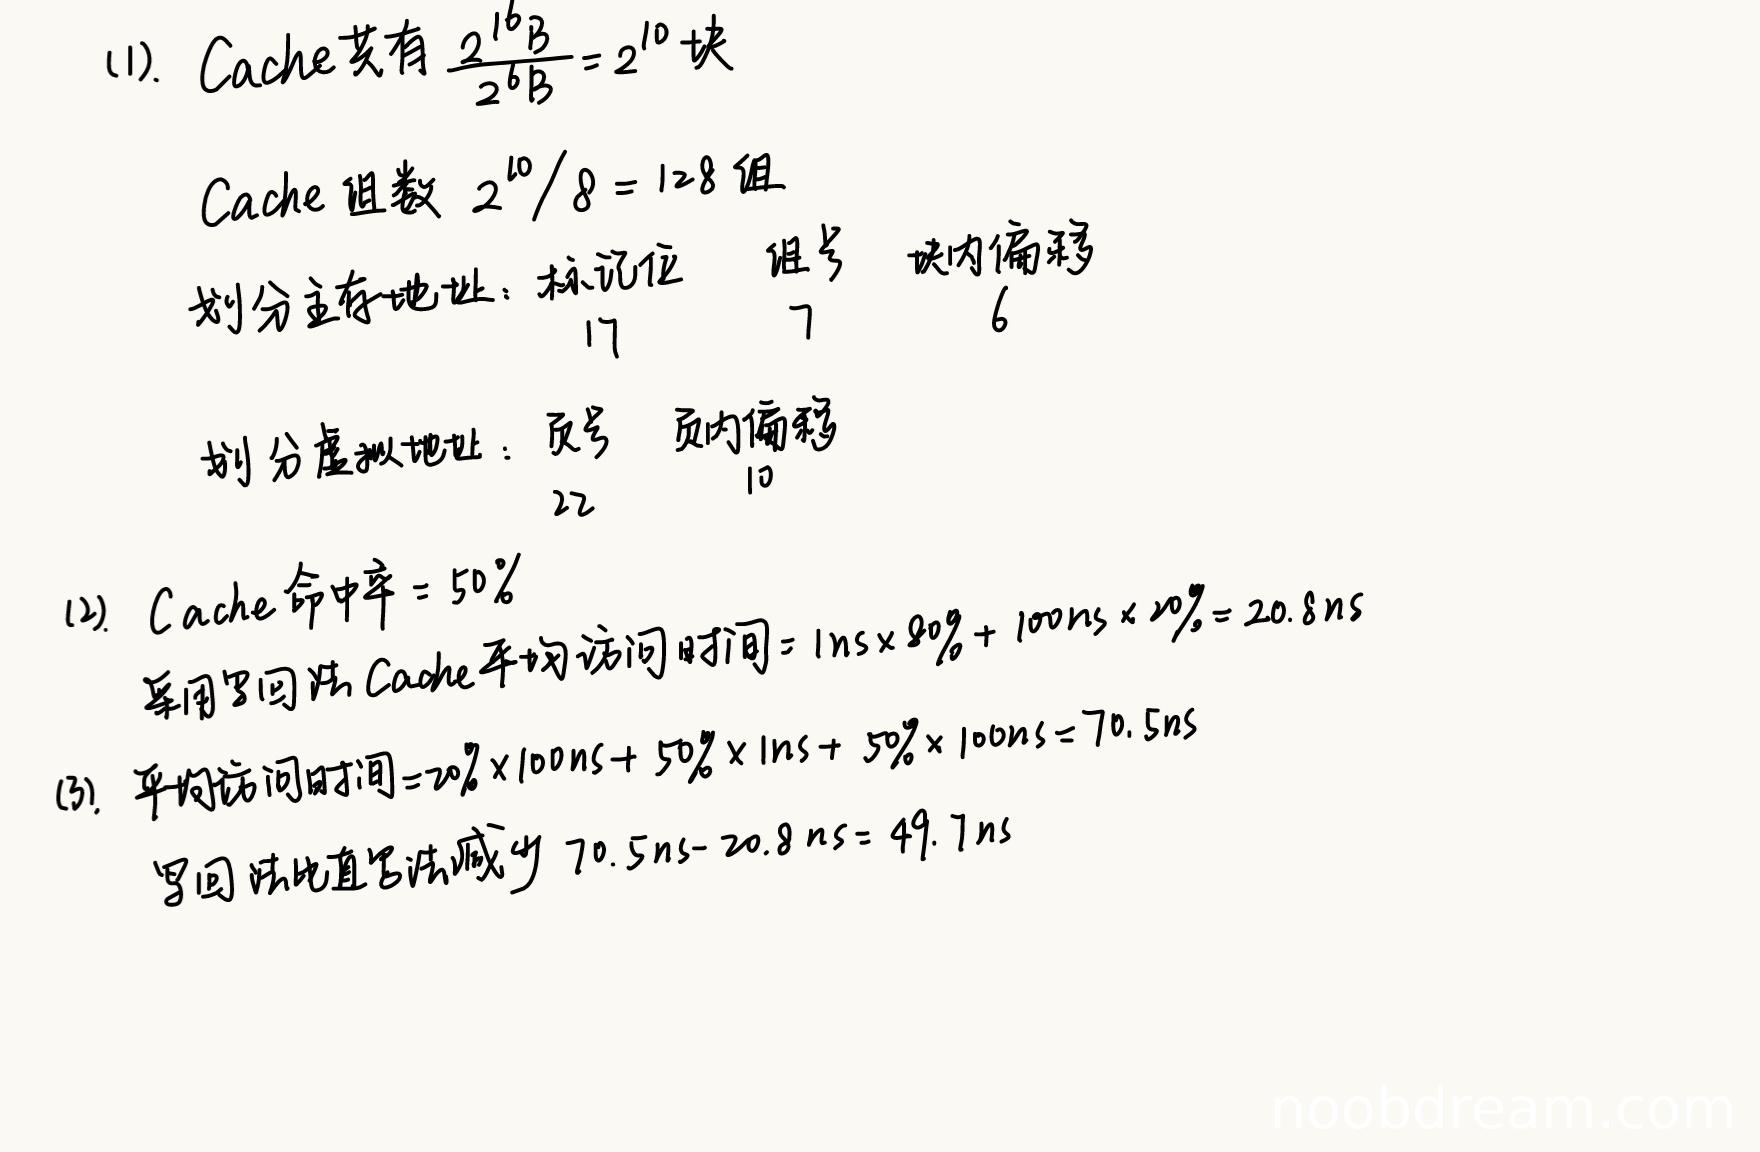 (1). Cache共有 2^16B / 2^6B = 2^10 块
Cache 组数 2^10/8 = 128 组
划分主存地址: 标记位 组号 块内偏移
17 7 6
划分虚拟地址: 页号 页内偏移
22 10
(2). Cache命中率 = 50%
采用写回法Cache平均访问时间 = 1ns × 80% + 100ns × 20% = 20.8ns
(3). 平均访问时间 = 20% × 100ns + 50% × 1ns + 50% × 100ns = 70.5ns
写回法比直写法减少 70.5ns - 20.8ns = 49.7ns
noobdream.com